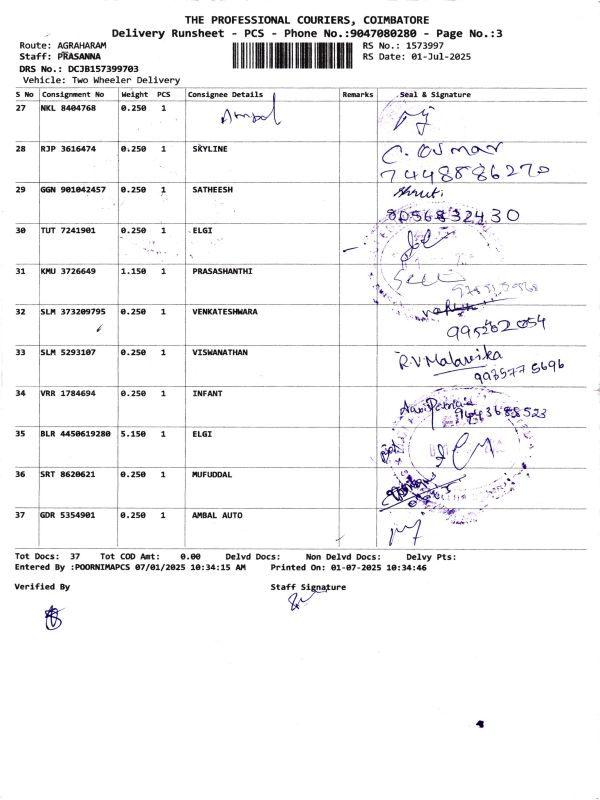 THE PROFESSIONAL COURIERS, COIMBATORE
Delivery Runsheet - PCS - Phone No.:9047080280 - Page No.:3
Route: AGRAHARAM RS No.: 1573997
Staff: PRASANNA RS Date: 01-Jul-2025
DRS No.: DCJB157399703
Vehicle: Two Wheeler Delivery
S No Consignment No Weight PCS Consignee Details Remarks Seal & Signature
27 NKL 8404768 0.250 1 Ambal
28 RJP 3616474 0.250 1 SKYLINE C. Osman
7448886270
29 GGN 901042457 0.250 1 SATHEESH Shruti
8056832430
30 TUT 7241901 0.250 1 ELGI
31 KMU 3726649 1.150 1 PRASASHANTHI
32 SLM 373209795 0.250 1 VENKATESHWARA
33 SLM 5293107 0.250 1 VISWANATHAN R.V Malavika
34 VRR 1784694 0.250 1 INFANT
35 BLR 4450619280 5.150 1 ELGI
36 SRT 8620621 0.250 1 MUFUDDAL
37 GDR 5354901 0.250 1 AMBAL AUTO
Tot Docs: 37 Tot COD Amt: 0.00 Delvd Docs: Non Delvd Docs: Delvy Pts:
Entered By :POORNIMAPCS 07/01/2025 10:34:15 AM Printed On: 01-07-2025 10:34:46
Verified By Staff Signature